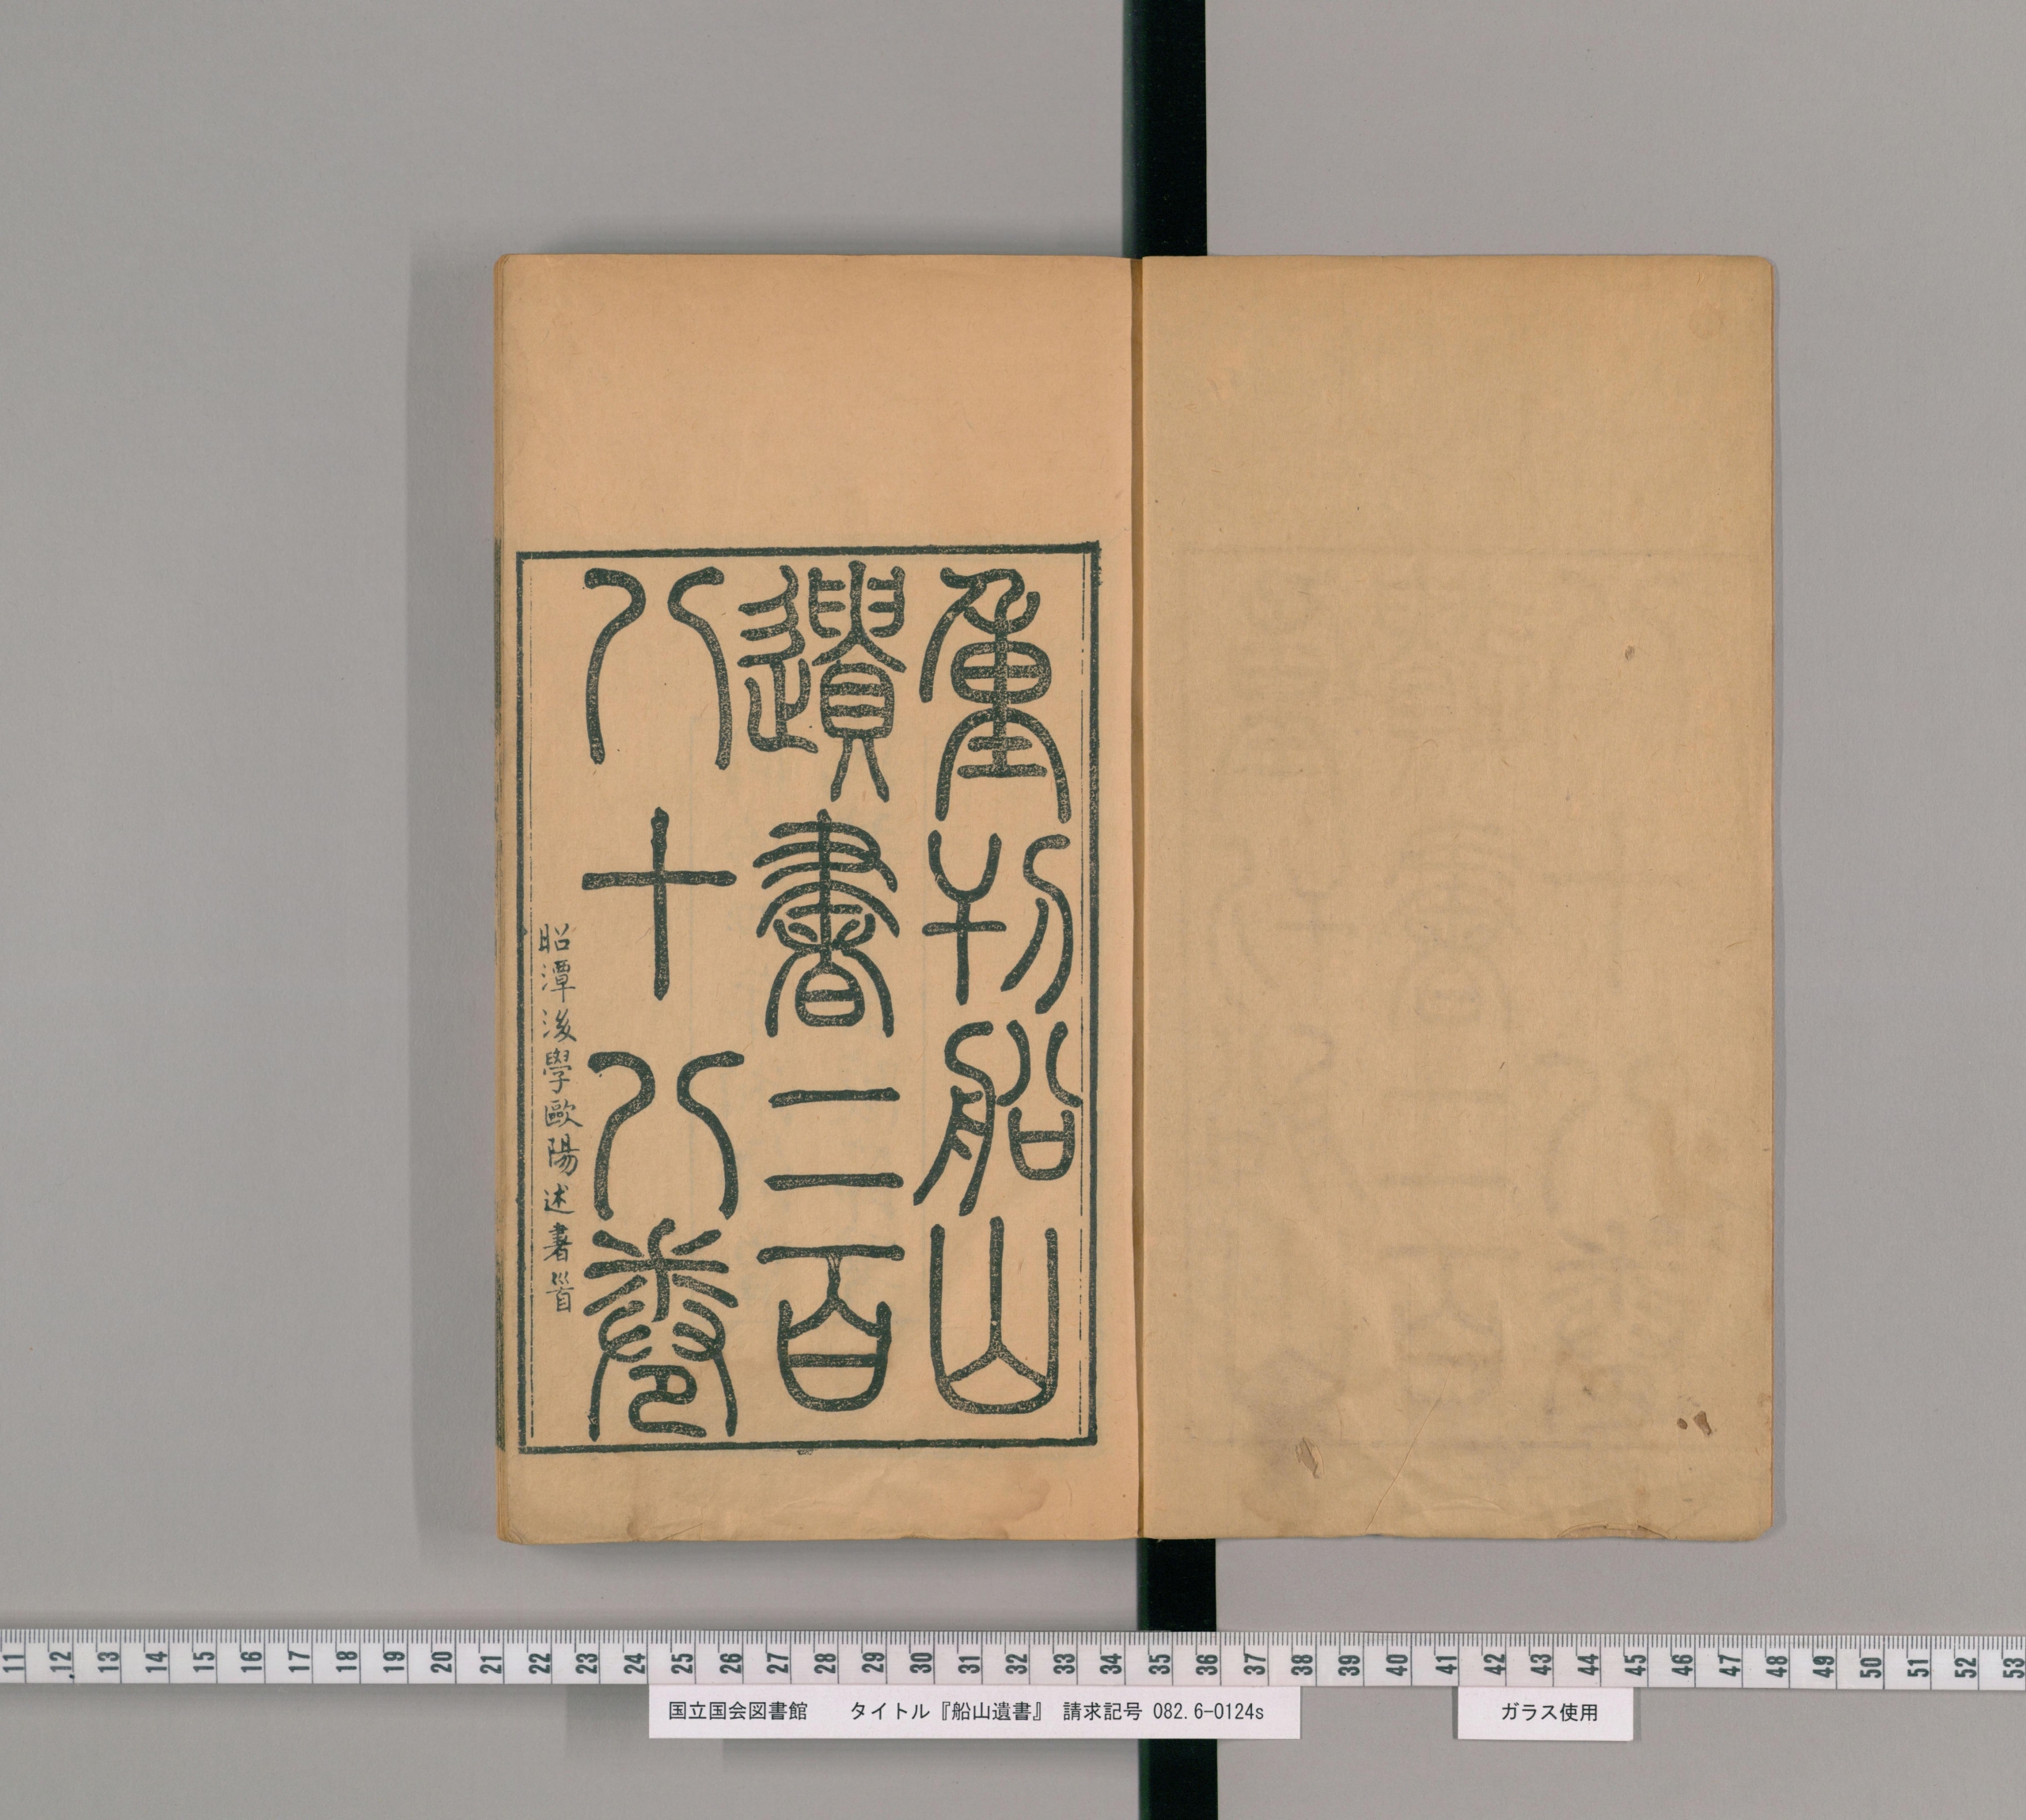 重刊船山
遺書二百
八十八卷
昭潭後學歐陽述書首
11 12 13 14 15 16 17 18 19 20 21 22 23 24 25 26 27 28 29 30 31 32 33 34 35 36 37 38 39 40 41 42 43 44 45 46 47 48 49 50 51 52 53
国立国会図書館 タイトル『船山遺書』 請求記号 082.6-0124s
ガラス使用